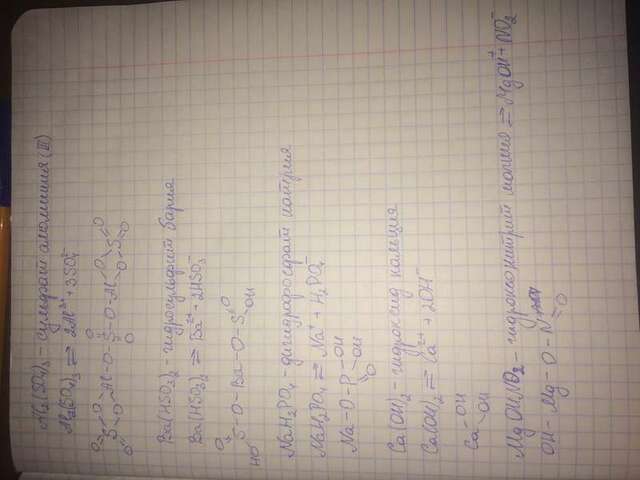 Al₂(SO₄)₃ - сульфат алюминия (III)
Al₂(SO₄)₃ ⇌ 2Al³⁺ + 3SO₄²⁻
O O O O O
S Al - O - S - O - Al S
O O O O O
Ba(HSO₃)₂ - гидросульфит бария
Ba(HSO₃)₂ ⇌ Ba²⁺ + 2HSO₃⁻
O O
S - O - Ba - O - S
HO OH
NaH₂PO₄ - дигидрофосфат натрия
NaH₂PO₄ ⇌ Na⁺ + H₂PO₄⁻
OH
Na - O - P OH
O
Ca(OH)₂ - гидроксид кальция
Ca(OH)₂ ⇌ Ca²⁺ + 2OH⁻
OH
Ca
OH
MgOHNO₂ - гидроксонитрит магния ⇌ MgOH⁺ + NO₂⁻
OH - Mg - O - N
O